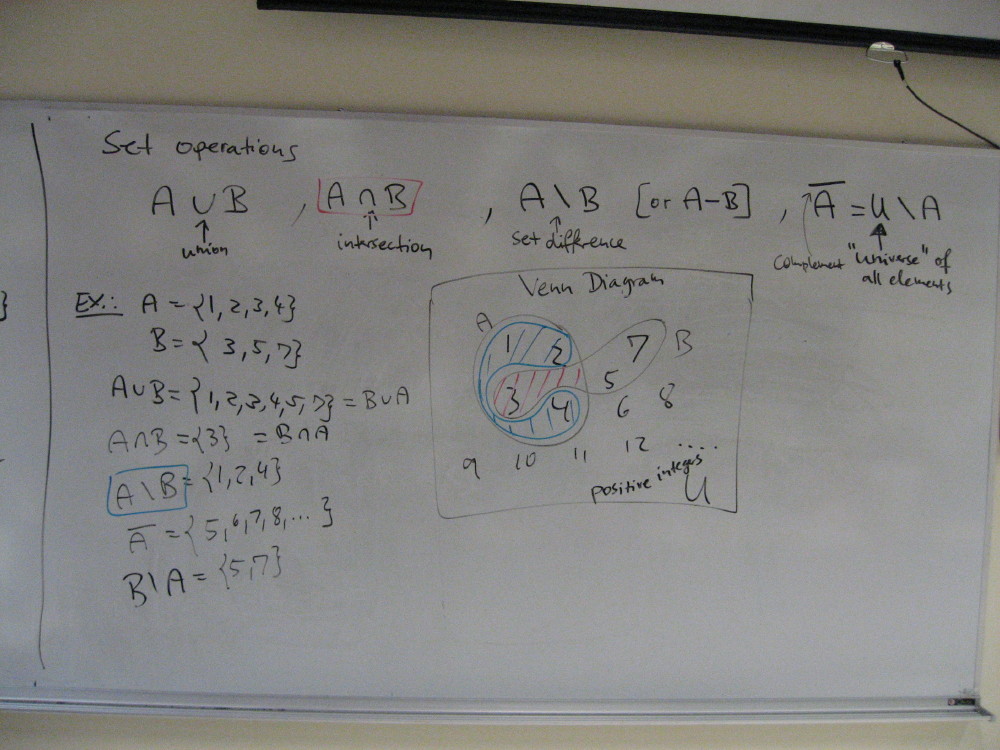 Set operations
A ∪ B , A ∩ B , A \ B [or A-B] , A̅ = U \ A
union
intersection
set difference
complement
"universe" of
all elements
EX.: A = {1, 2, 3, 4}
B = { 3, 5, 7}
A∪B = {1, 2, 3, 4, 5, 7} = B∪A
A∩B = {3} = B∩A
A \ B = {1, 2, 4}
A̅ = {5, 6, 7, 8, ... }
B \ A = {5, 7}
Venn Diagram
A
1 2 7 B
3 4 5 6 8
9 10 11 12 .....
positive integers
U
}